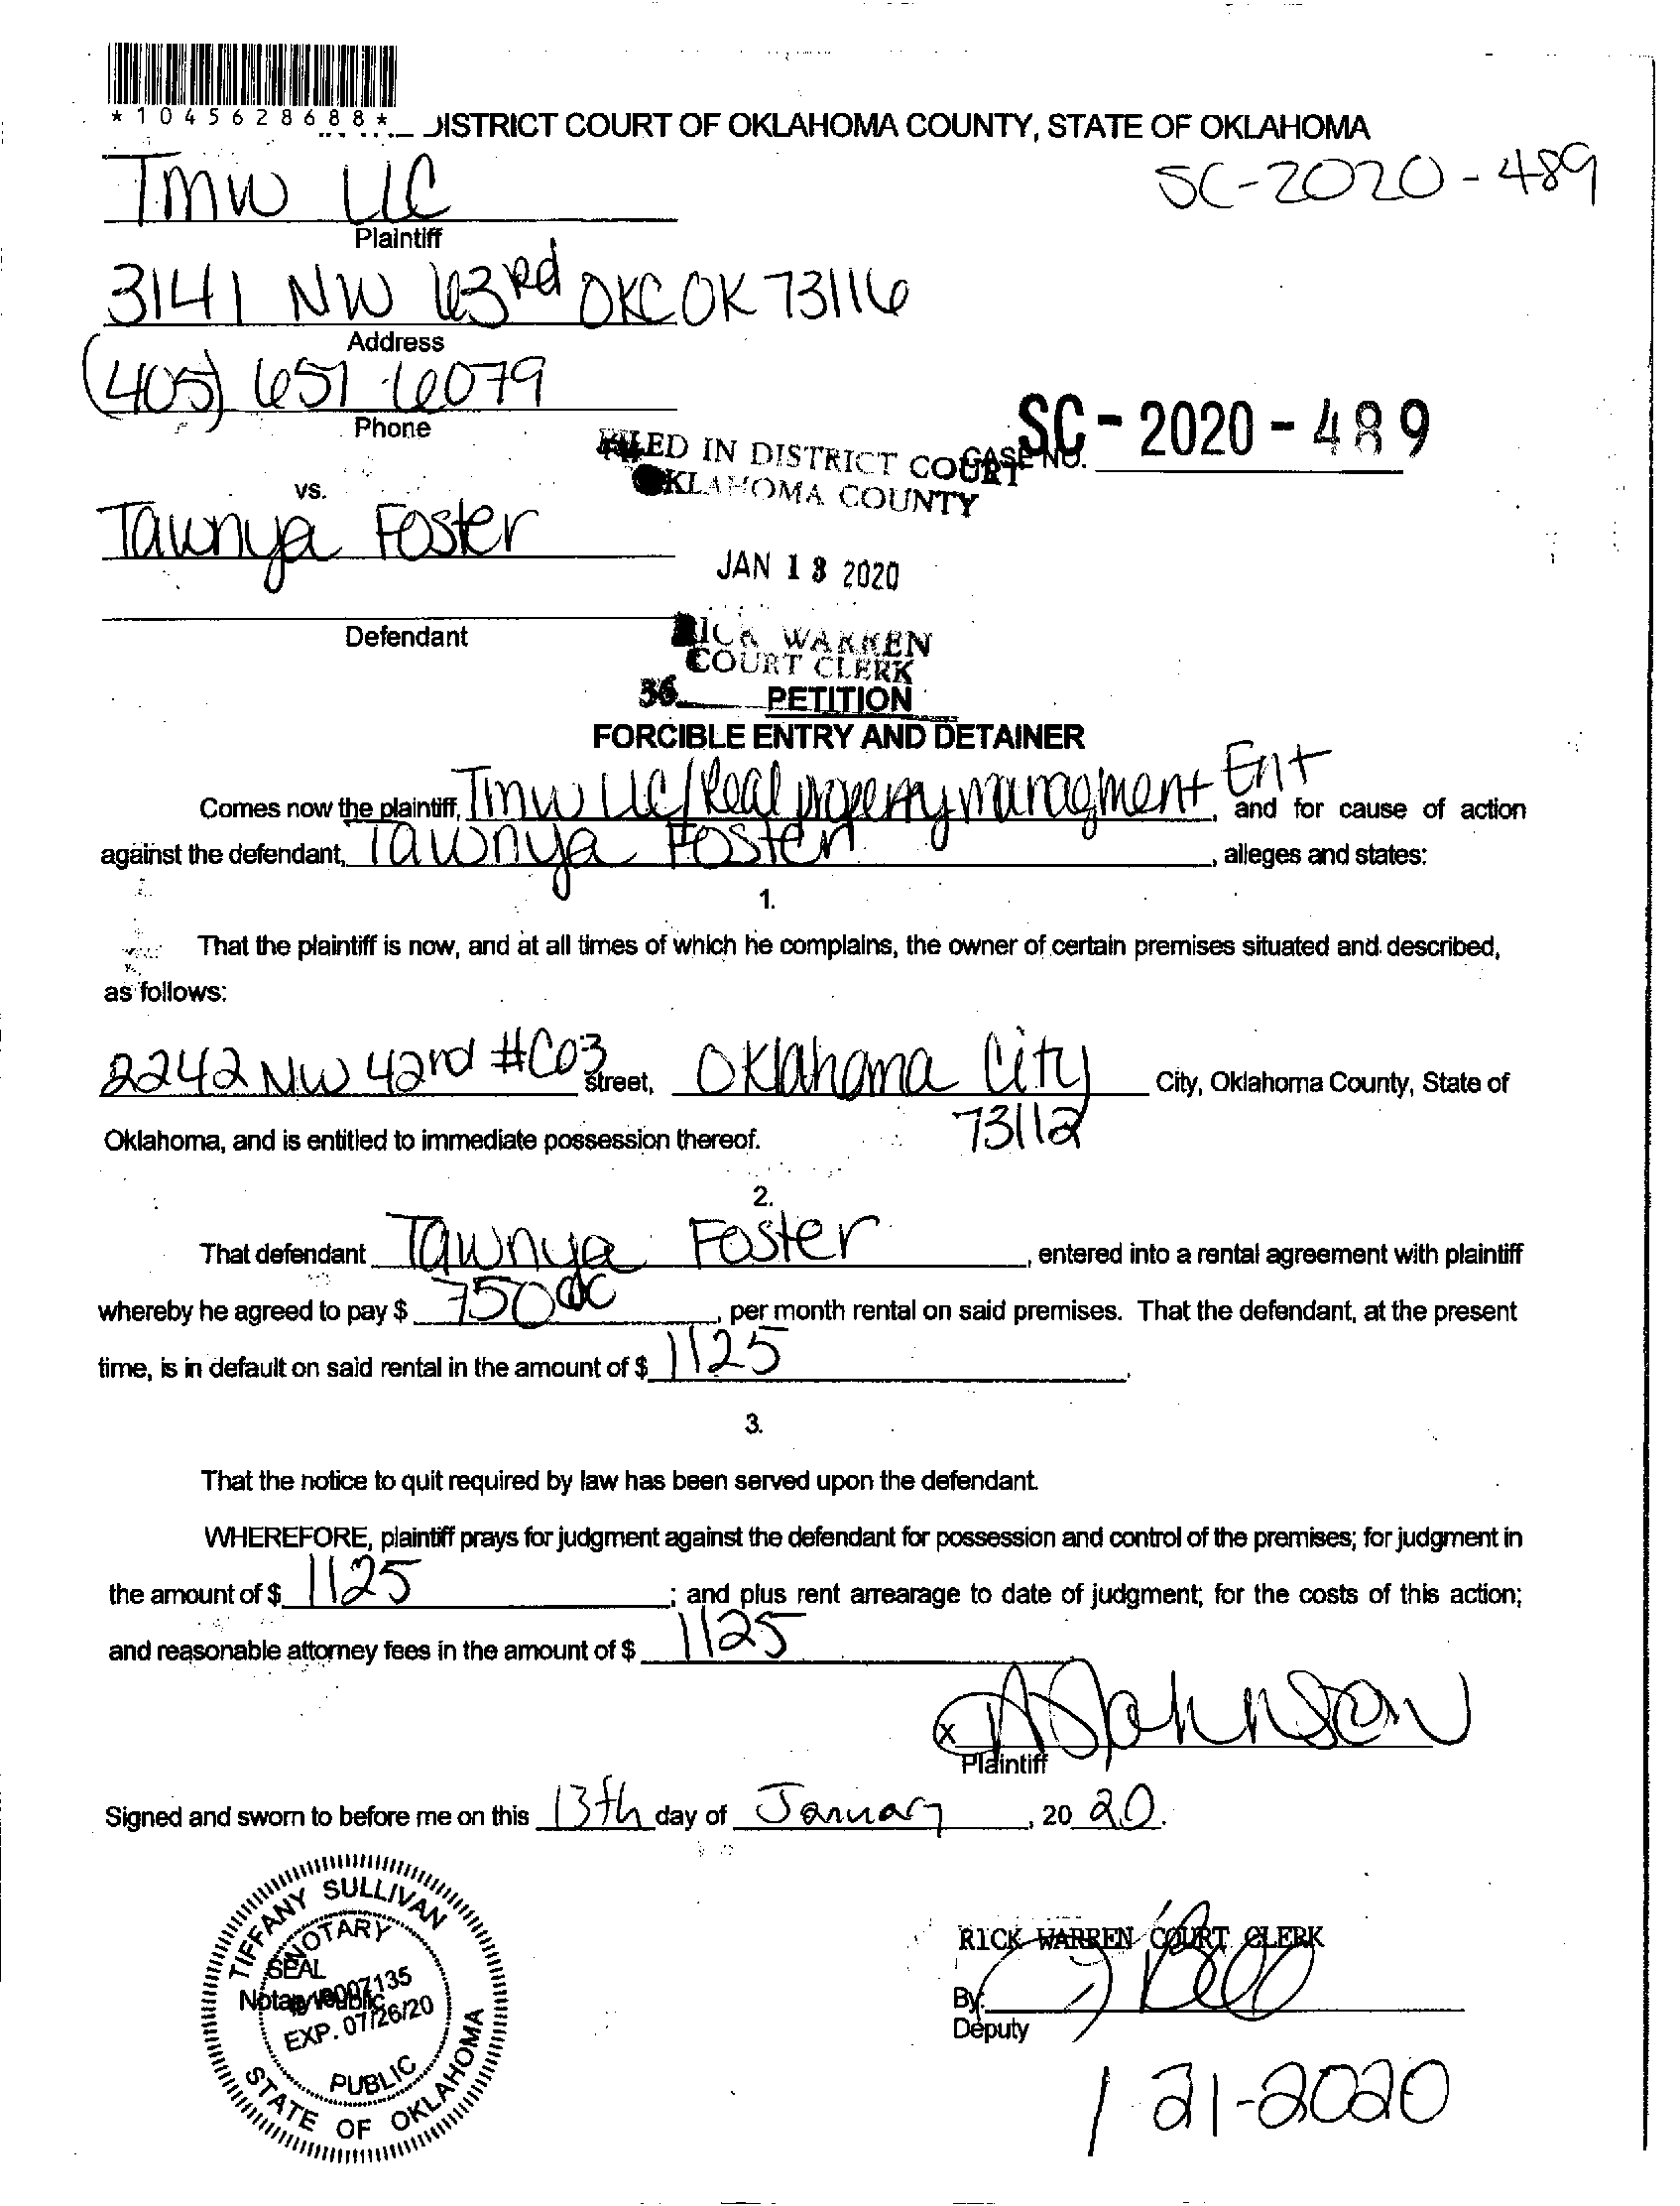 *1045628688*
DISTRICT COURT OF OKLAHOMA COUNTY, STATE OF OKLAHOMA
TMW LLC
SC-2020-489
Plaintiff
3141 NW 63rd OKC OK 73116
Address
(405) 651-6079
Phone
SC-2020-489
FILED IN DISTRICT COURT
CASE NO.
OKLAHOMA COUNTY
vs.
Tawnya Foster
JAN 13 2020
Defendant
RICK WARREN
COURT CLERK
36
PETITION
FORCIBLE ENTRY AND DETAINER
Comes now the plaintiff, TMW LLC/Real property managment Ent, and for cause of action
against the defendant, Tawnya Foster, alleges and states:
1.
That the plaintiff is now, and at all times of which he complains, the owner of certain premises situated and described,
as follows:
2242 NW 42rd #C03 Street, Oklahoma City City, Oklahoma County, State of
73112
Oklahoma, and is entitled to immediate possession thereof.
2.
That defendant Tawnya Foster, entered into a rental agreement with plaintiff
whereby he agreed to pay $ 750 00, per month rental on said premises. That the defendant, at the present
time, is in default on said rental in the amount of $ 1125.
3.
That the notice to quit required by law has been served upon the defendant.
WHEREFORE, plaintiff prays for judgment against the defendant for possession and control of the premises; for judgment in
the amount of $ 1125; and plus rent arrearage to date of judgment; for the costs of this action;
and reasonable attorney fees in the amount of $ 1125
x Johnson
Plaintiff
Signed and sworn to before me on this 13th day of January, 20 20.
TIFFANY SULLIVAN
NOTARY
SEAL
Notary Public
EXP. 07/26/20
PUBLIC
STATE OF OKLAHOMA
RICK WARREN COURT CLERK
By:
Deputy
1 21-2020